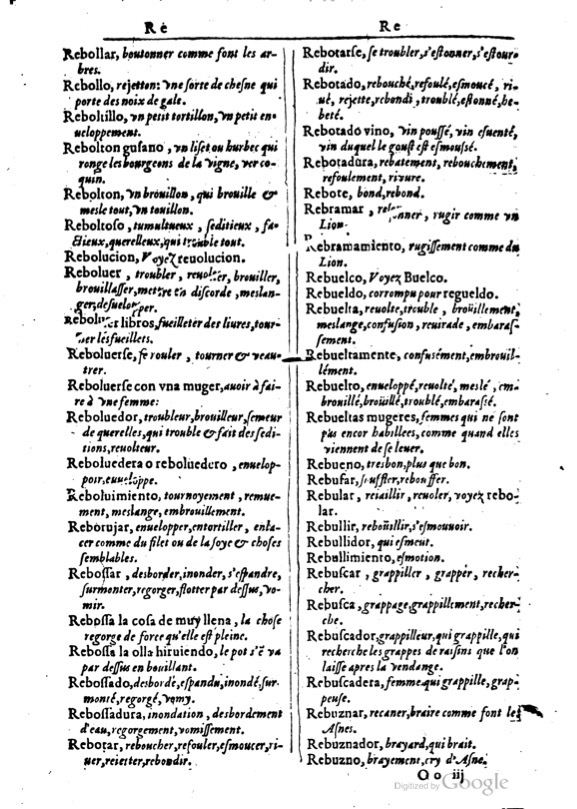 Re
Re
Rebollar, boutonner comme font les ar-
bres.
Rebollo, rejetton: vne sorte de chesne qui
porte des noix de gale.
Reboltillo, vn petit tortillon, vn petit en-
ueloppement.
Rebolton gusano, vn liset ou hurbec qui
ronge les bourgeons de la vigne, ver co-
quin.
Rebolton, vn brouillon, qui brouille &
mesle tout, vn touillon.
Reboltoso, tumultueux, seditieux, fa-
ctieux, querelleux, qui trouble tout.
Rebolucion, Voyez reuolucion.
Reboluer, troubler, reuolter, brouiller,
brouillasser, mettre en discorde, meslan-
ger, desueloper.
Reboluer libros, fueilleter des liures, tour-
ner les fueillets.
Reboluerse, se rouler, tourner & veau-
trer.
Reboluerse con vna muger, auoir à fai-
re à vne femme:
Reboluedor, troubleur, brouilleur, semeur
de querelles, qui trouble & fait des sedi-
tions, reuolteur.
Reboluedera o reboluedero, envelop-
poir, enueloppe.
Reboluimiento, tournoyement, remue-
ment, meslange, embrouillement.
Reborujar, envelopper, entortiller, enla-
cer comme du filet ou de la soye & choses
semblables.
Rebossar, desborder, inonder, s'espandre,
surmonter, regorger, flotter par dessus, vo-
mir.
Rebossa la cosa de muy llena, la chose
regorge de force qu'elle est pleine.
Rebossa la olla hiruiendo, le pot s'ē va
par dessus en bouillant.
Rebossado, desbordé, espandu, inondé, sur-
monté, regorgé, vomy.
Rebossadura, inondation, desbordement
d'eau, regorgement, vomissement.
Rebotar, reboucher, refouler, esmoucer, ri-
uer, reietter, rebondir.
Rebotarse, se troubler, s'estonner, s'estour-
dir.
Rebotado, rebouché, refoulé, esmoucé, ri-
ué, rejetté, rebondi, troublé, estonné, he-
beté.
Rebotado vino, vin poussé, vin esuenté,
vin duquel le goust est esmoussé.
Rebotadura, rebatement, rebouchement,
refoulement, riuure.
Rebote, bond, rebond.
Rebramar, rugir comme vn
Lion.
Rebramamiento, rugissement comme du
Lion.
Rebuelco, Voyez Buelco.
Rebueldo, corrompu pour regueldo.
Rebuelta, reuolte, trouble, broüillement,
meslange, confusion, reuirade, embaras-
sement.
Rebueltamente, confusément, embrouil-
lément.
Rebuelto, enueloppé, reuolté, meslé, em-
brouillé, broüillé, troublé, embarassé.
Rebueltas mugeres, femmes qui ne sont
pas encor habillees, comme quand elles
viennent de se leuer.
Rebueno, tresbon, plus que bon.
Rebufar, souffler, rebouffer.
Rebular, reiaillir, reuoler, voyez rebo-
lar.
Rebullir, reboüillir, s'esmouuoir.
Rebullidor, qui esmeut.
Rebullimiento, esmotion.
Rebuscar, grappiller, grapper, recher-
cher.
Rebusca, grappage, grappillement, recher-
che.
Rebuscador, grappilleur, qui grappille, qui
recherche les grappes de raisins que l'on
laisse apres la vendange.
Rebuscadera, femme qui grappille, grap-
peuse.
Rebuznar, recaner, braire comme font les
Asnes.
Rebuznador, brayard, qui brait.
Rebuzno, brayement, cry d'Asne.
Oo iij
Digitized by Google